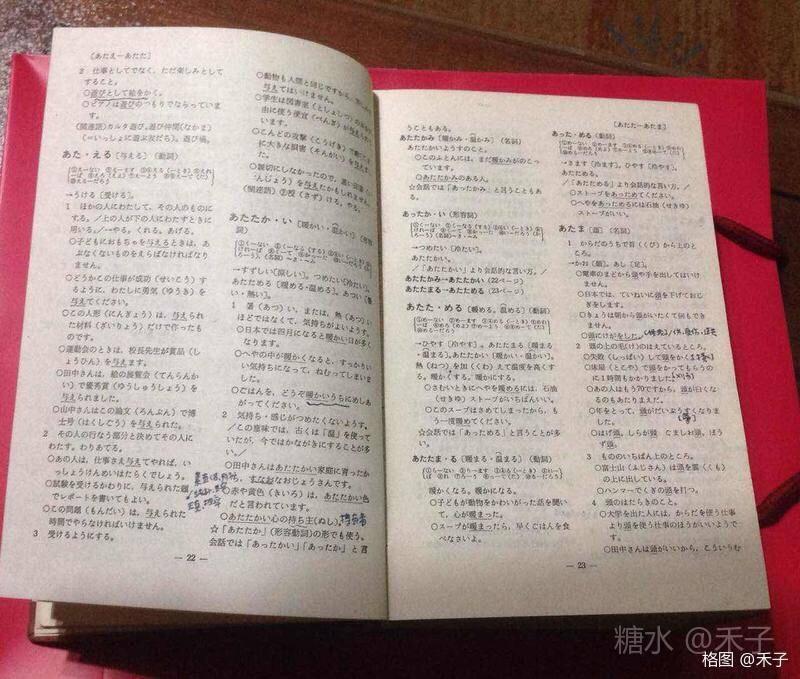 ［あたえーあたた］
2 仕事としてでなく、ただ楽しみとして
すること。
○遊びとして絵をかく。
○ピアノは遊びのつもりでならっていま
す。
(関連語) カルタ遊び。遊び仲間(なかま)
(＝いっしょに遊ぶ友だち)。遊び場。
あた・える［与える］(動詞)
→うける［受ける］。
1 ほかの人にわたして、その人のものに
する。／上の人が下の人にわたすときに
用いる。／→やる。くれる。あげる。
○子どもにおもちゃを与えるときは、あ
ぶなくないものをえらばなければなり
ません。
○どうかこの仕事が成功(せいこう)す
るように、わたしに勇気(ゆうき)を
与えてください。
○この人形(にんぎょう)は、与えられ
た材料(ざいりょう)だけで作ったも
のです。
○運動会のときは、校長先生が賞品(し
ょうひん)を与えます。
○田中さんは、絵の展覧会(てんらんか
い)で優秀賞(ゆうしゅうしょう)を
与えられました。
○山中さんはこの論文(ろんぶん)で博
士号(はくしごう)を与えられた。
2 その人の行なう部分と決めてその人に
わたす。わりあてる。
○あの人は、仕事さえ与えてやれば、い
っしょうけんめいはたらくでしょう。
○試験を受けるかわりに、与えられた題
でレポートを書いてもよい。
○この問題(もんだい)は、与えられた
時間でやらなければいけません。
3 受けるようにする。
○動物も人間と同じですから、
与えてはいけません。
○学生は図書室(としょしつ)の
由に使う便宜(べんぎ)が与えら
○こんどの攻撃(こうげき)で
に大きな損害(そんがい)を与えま
○親切にしなかったので、悪い印象(い
んしょう)を与えたかもしれません。
(関連語) ②授(さず)ける。やる。
あたたか・い［暖かい・温かい］(形容
詞)
→すずしい［涼しい］。つめたい［冷たい］。
あたためる［暖める・温める］。あつい［暑
い・熱い］。
1 暑(あつ)い、または、熱(あつ)い
ほどではなくて、気持ちがよいようす。
○日本では四月になると暖かい日が多く
なります。
○へやの中が暖かくなると、すっかりい
い気持ちになって、ねむってしまいま
した。
○ごはんを、どうぞ暖かいうちにめしあ
がってください。
2 気持ち・感じがつめたくないようす。
／この意味では、古くは「温」を使って
いたが、今ではかながきにすることが多
い。／
○田中さんはあたたかい家庭に育ったか
ら、すなおなおじょうさんです。
○赤や黄色(きいろ)は、あたたかい色
だと言われています。
○あたたかい心の持ち主(ぬし)。
☆「あたたか」(形容動詞)の形でも使う。
会話では「あったかい」「あったか」と言
— 22 —
［あたたーあたま］
うこともある。
あたたかみ［暖かみ・温かみ］(名詞)
あたたかいようすのこと。
○このふとんには、まだ暖かみがのこっ
ています。
○あたたかみのある人。
☆会話では「あったかみ」と言うこともあ
る。
あったか・い(形容詞)
→つめたい［冷たい］。
あたたかい。
／「あたたかい」より会話的な言い方。／
あたたかみ→あたたかい(22ページ)
あたたまる→あたためる(23ページ)
あたた・める［暖める。温める］(動詞)
→ひやす［冷やす］。あたたまる［暖まる
・温まる］。あたたかい［暖かい・温かい］。
熱(ねつ)を加(くわ)えて温度を高くす
る。暖かくする。暖かにする。
○さむいときにへやを暖めるには、石油
(せきゆ)ストーブがいちばんいい。
○このスープはさめてしまったから、も
う一度暖めてください。
☆会話では「あっためる」と言うことが多
い。
あたたま・る［暖まる・温まる］(動詞)
暖かくなる。暖かになる。
○子どもが動物をかわいがった話を聞い
て、心が暖まった。
○スープが暖まったら、早くごはんを食
べなさいよ。
あった・める(動詞)
→さます［冷ます］。ひやす［冷やす］。
あたためる。
／「あたためる」より会話的な言い方。／
○ストーブをあっためてください。
○へやをあっためるには石油(せきゆ)
ストーブがいい。
あたま［頭］(名詞)
1 からだのうちで首(くび)から上のと
ころ。
→かお［顔］。あし［足］。
○電車のまどから頭や手を出してはいけ
ません。
○日本では、ていねいに頭を下げておじ
ぎをします。
○きょうは朝から頭がいたくて何もでき
ません。
○頭にけがをした。
2 頭の上の毛(け)のはえているところ。
○失敗(しっぱい)して頭をかく。
○床屋(とこや)で頭をかってもらうの
に1時間もかかりました。
○あの人はもう70ですから、頭が白くな
るのもあたりまえだ。
○年をとって、頭がだいぶうすくなりま
した。
○はげ頭。しらが頭 ごましお頭。ほう
ず頭。
3 もののいちばん上のところ。
○富士山(ふじさん)は頭を雲(くも)
の上に出している。
○ハンマーでくぎの頭を打つ。
4 頭のはたらきのこと。
○大学を出た人には、からだを使う仕事
より頭を使う仕事のほうがいいようで
す。
○田中さんは頭がいいから、こういうむ
— 23 —
糖水 @禾子
格图 @禾子